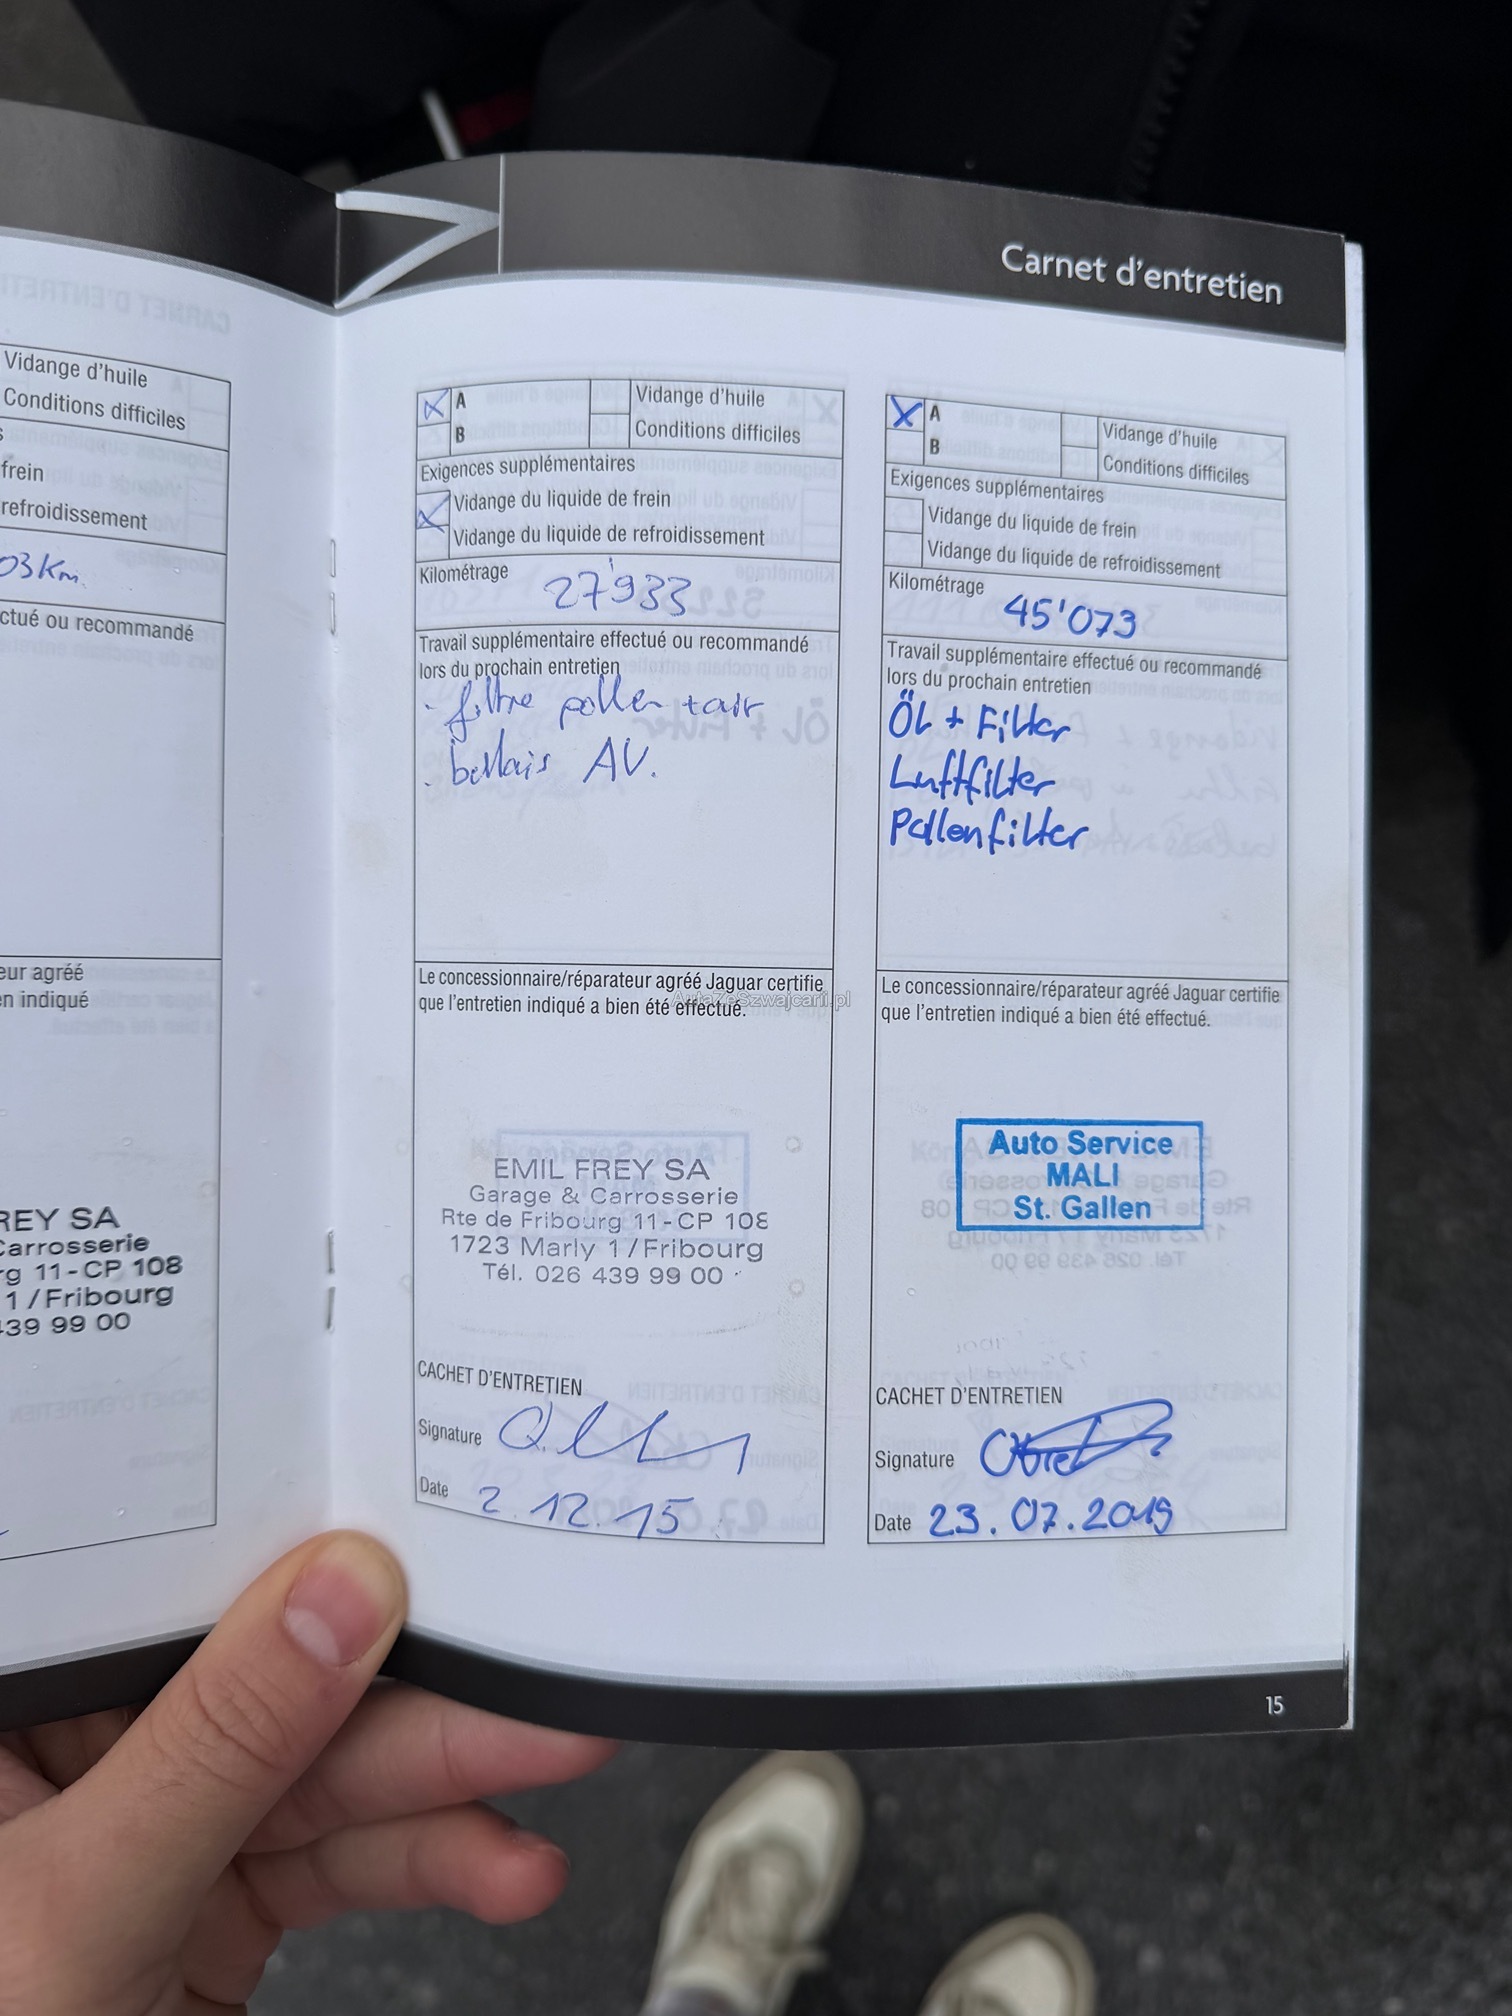 Carnet d'entretien
Vidange d'huile
Conditions difficiles
frein
refroidissement
03 Km
ctué ou recommandé
eur agréé
en indiqué
REY SA
Carrosserie
g 11-CP 108
1/Fribourg
439 99 00
A
B
Vidange d'huile
Conditions difficiles
Exigences supplémentaires
Vidange du liquide de frein
Vidange du liquide de refroidissement
Kilométrage
27'933
Travail supplémentaire effectué ou recommandé
lors du prochain entretien
- filtre pollen + air
- balais AV.
Le concessionnaire/réparateur agréé Jaguar certifie
que l'entretien indiqué a bien été effectué.
EMIL FREY SA
Garage & Carrosserie
Rte de Fribourg 11-CP 108
1723 Marly 1/Fribourg
Tél. 026 439 99 00
CACHET D'ENTRETIEN
Signature
Date 2.12.15
A
B
Vidange d'huile
Conditions difficiles
Exigences supplémentaires
Vidange du liquide de frein
Vidange du liquide de refroidissement
Kilométrage
45'073
Travail supplémentaire effectué ou recommandé
lors du prochain entretien
ÖL + Filter
Luftfilter
Pollenfilter
Le concessionnaire/réparateur agréé Jaguar certifie
que l'entretien indiqué a bien été effectué.
Auto Service
MALI
St. Gallen
CACHET D'ENTRETIEN
Signature
Date 23.07.2019
15
AutaZeSzwajcarii.pl